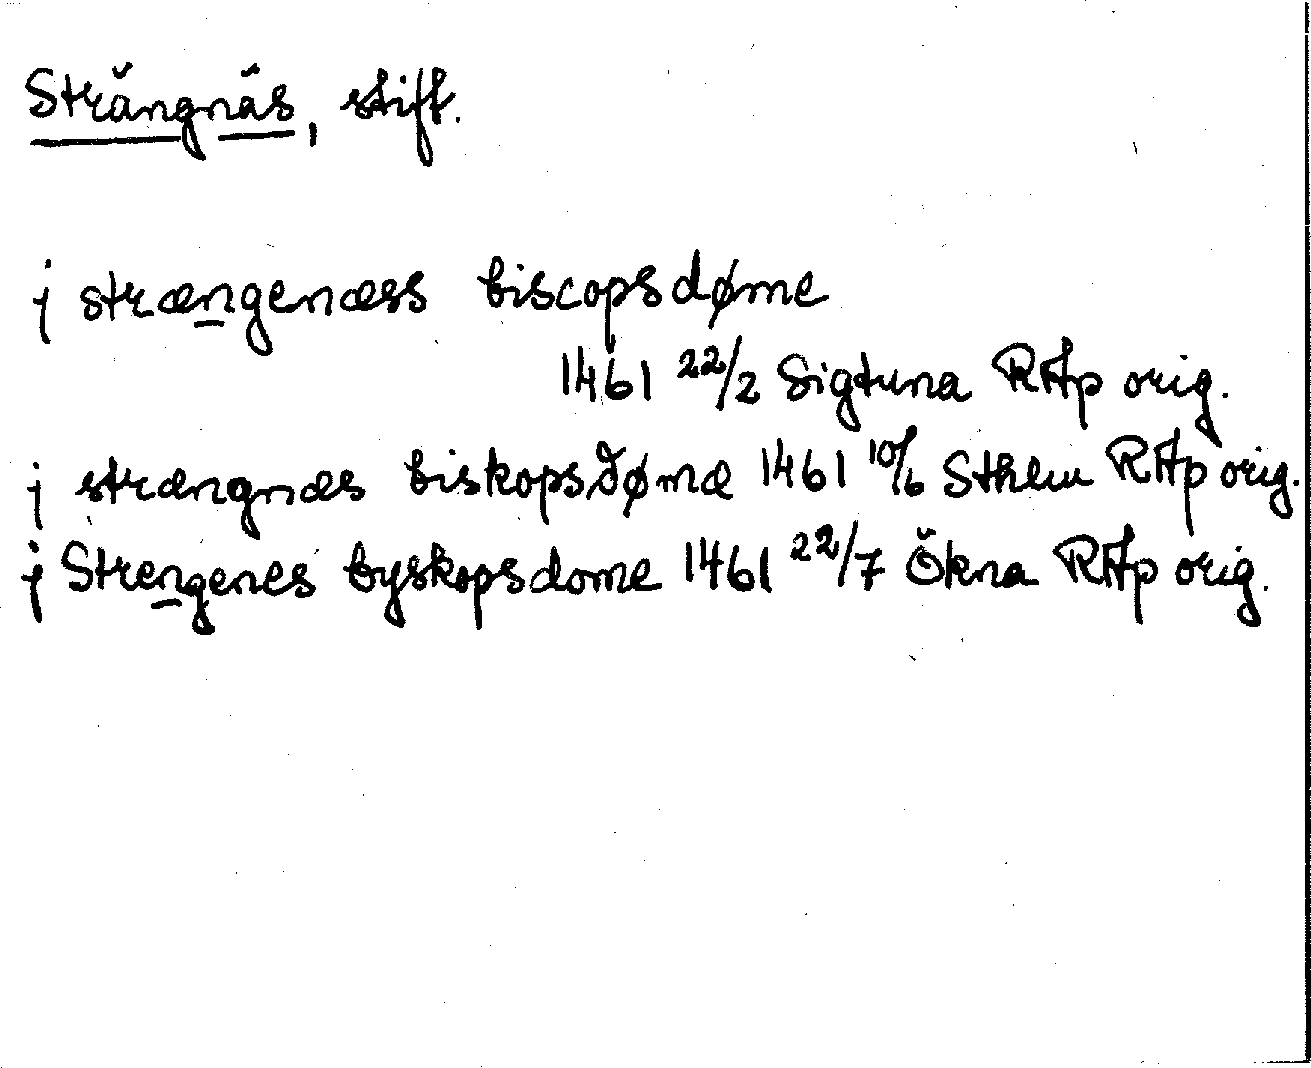 Strängnäs, stift.
j strængenæss biscopsdøme
1461 22/2 Sigtuna RAp orig.
j strængnæs biskopsdømæ 1461 10/6 Sthlm RAp orig.
j Strengenes byskopsdome 1461 22/7 Ökna RAp orig.